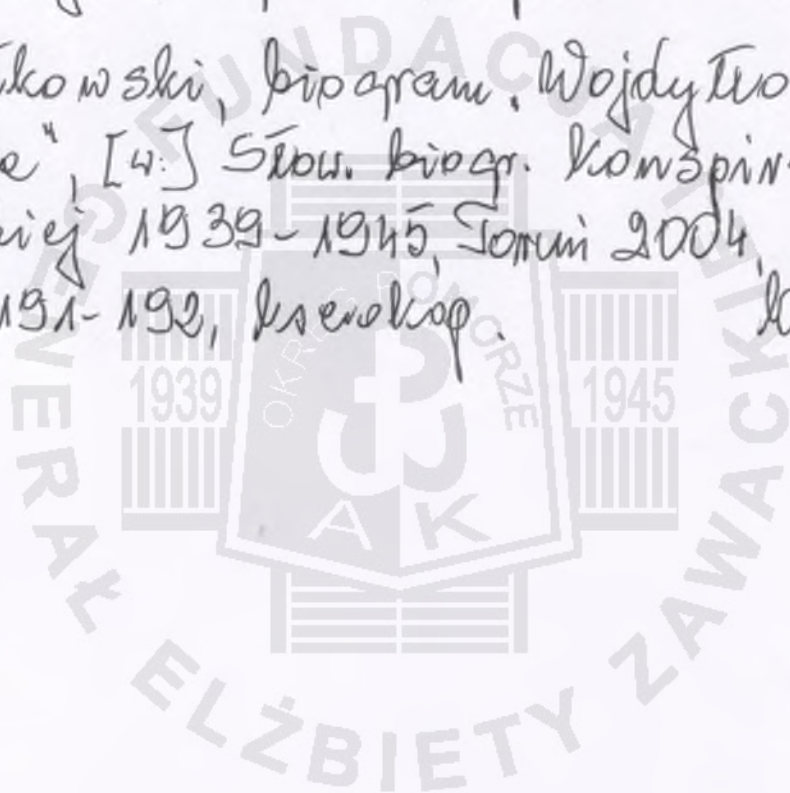 kowski, biogram. Wojdyłło
e", [w:] Słow. biogr. konspir
iej 1939-1945, Toruń 2004,
191-192, kserokop.
FUNDACJA GENERAŁ ELŻBIETY ZAWACKIEJ
OKRĘG POMORZE
1939
1945
AK